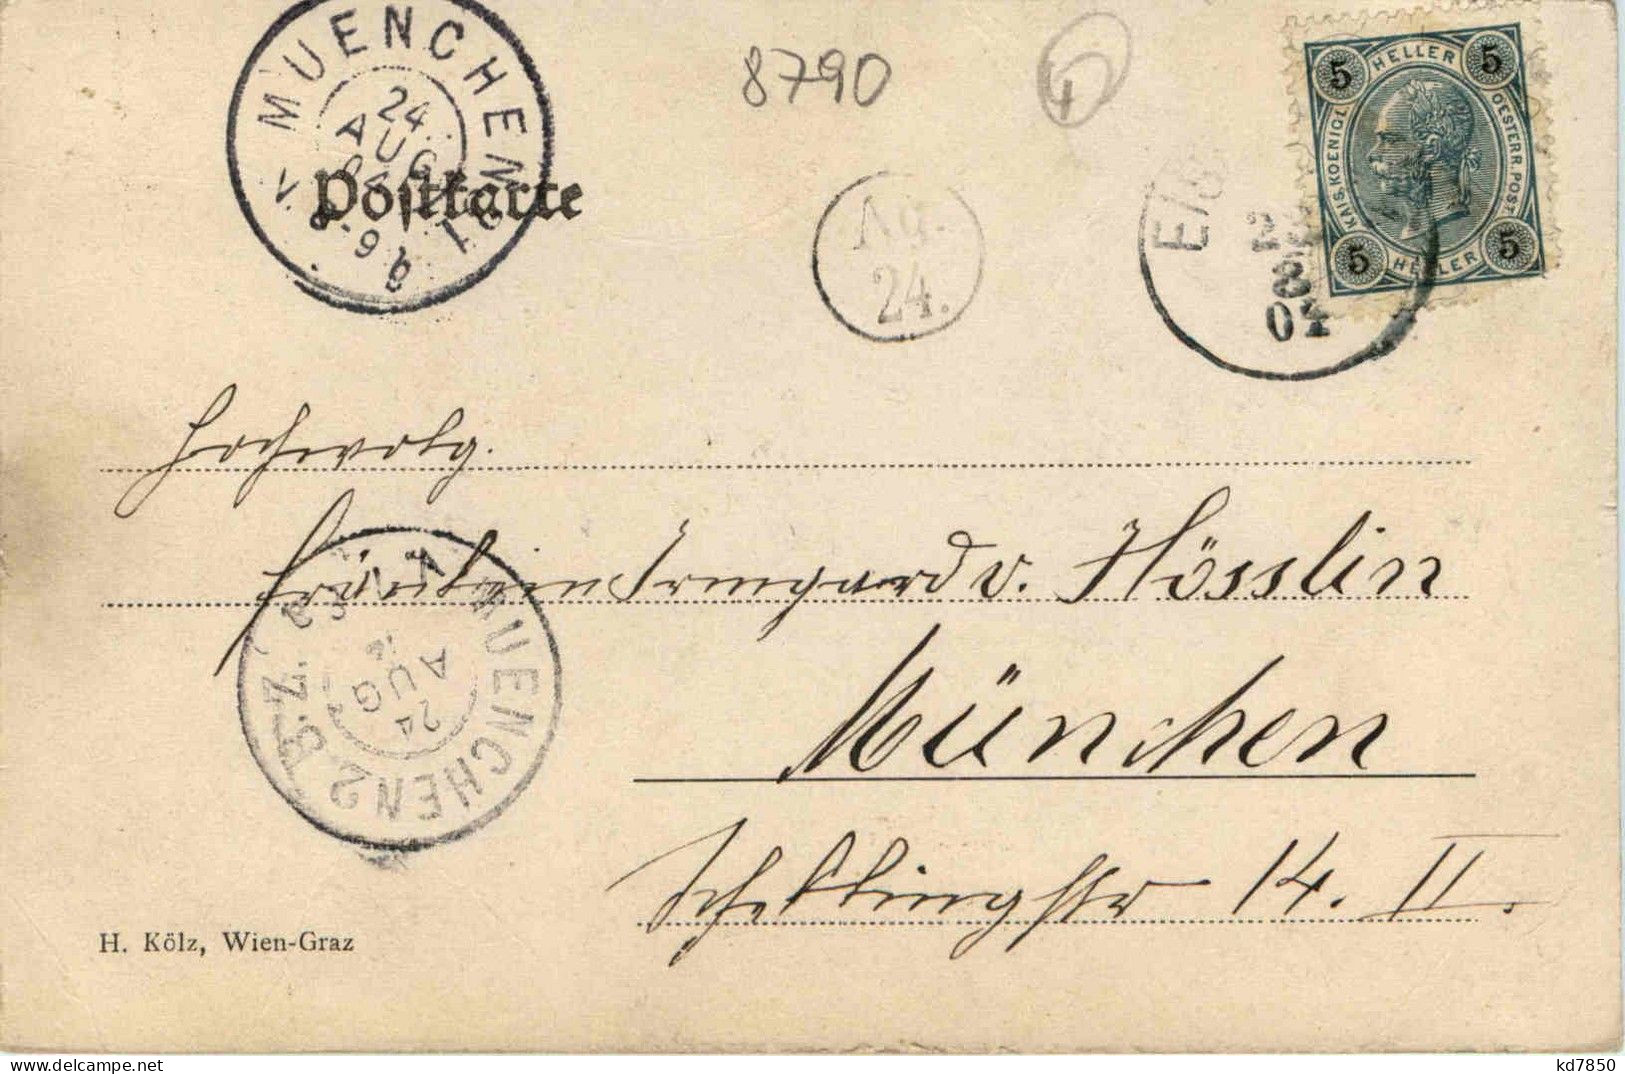 MUENCHEN
24
AUG
V. 8-9
8790
4
5 HELLER 5
KAIS.KOENIGL.
OESTERR.POST
5 HELLER 5
Postkarte
Ag.
24.
8
04
Hochwolg.
Fräulein Irmgard v. Hösslin
München
Schellingstr 14. II.
MUENCHEN 2
24
AUG
H. Kölz, Wien-Graz
kd7850